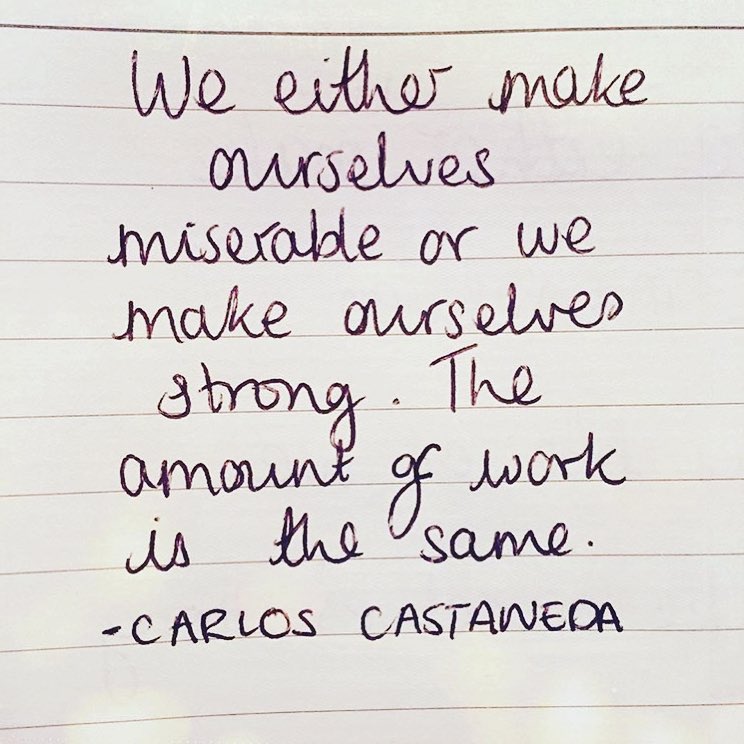 We either make
ourselves
miserable or we
make ourselves
strong. The
amount of work
is the same.
-CARLOS CASTANEDA